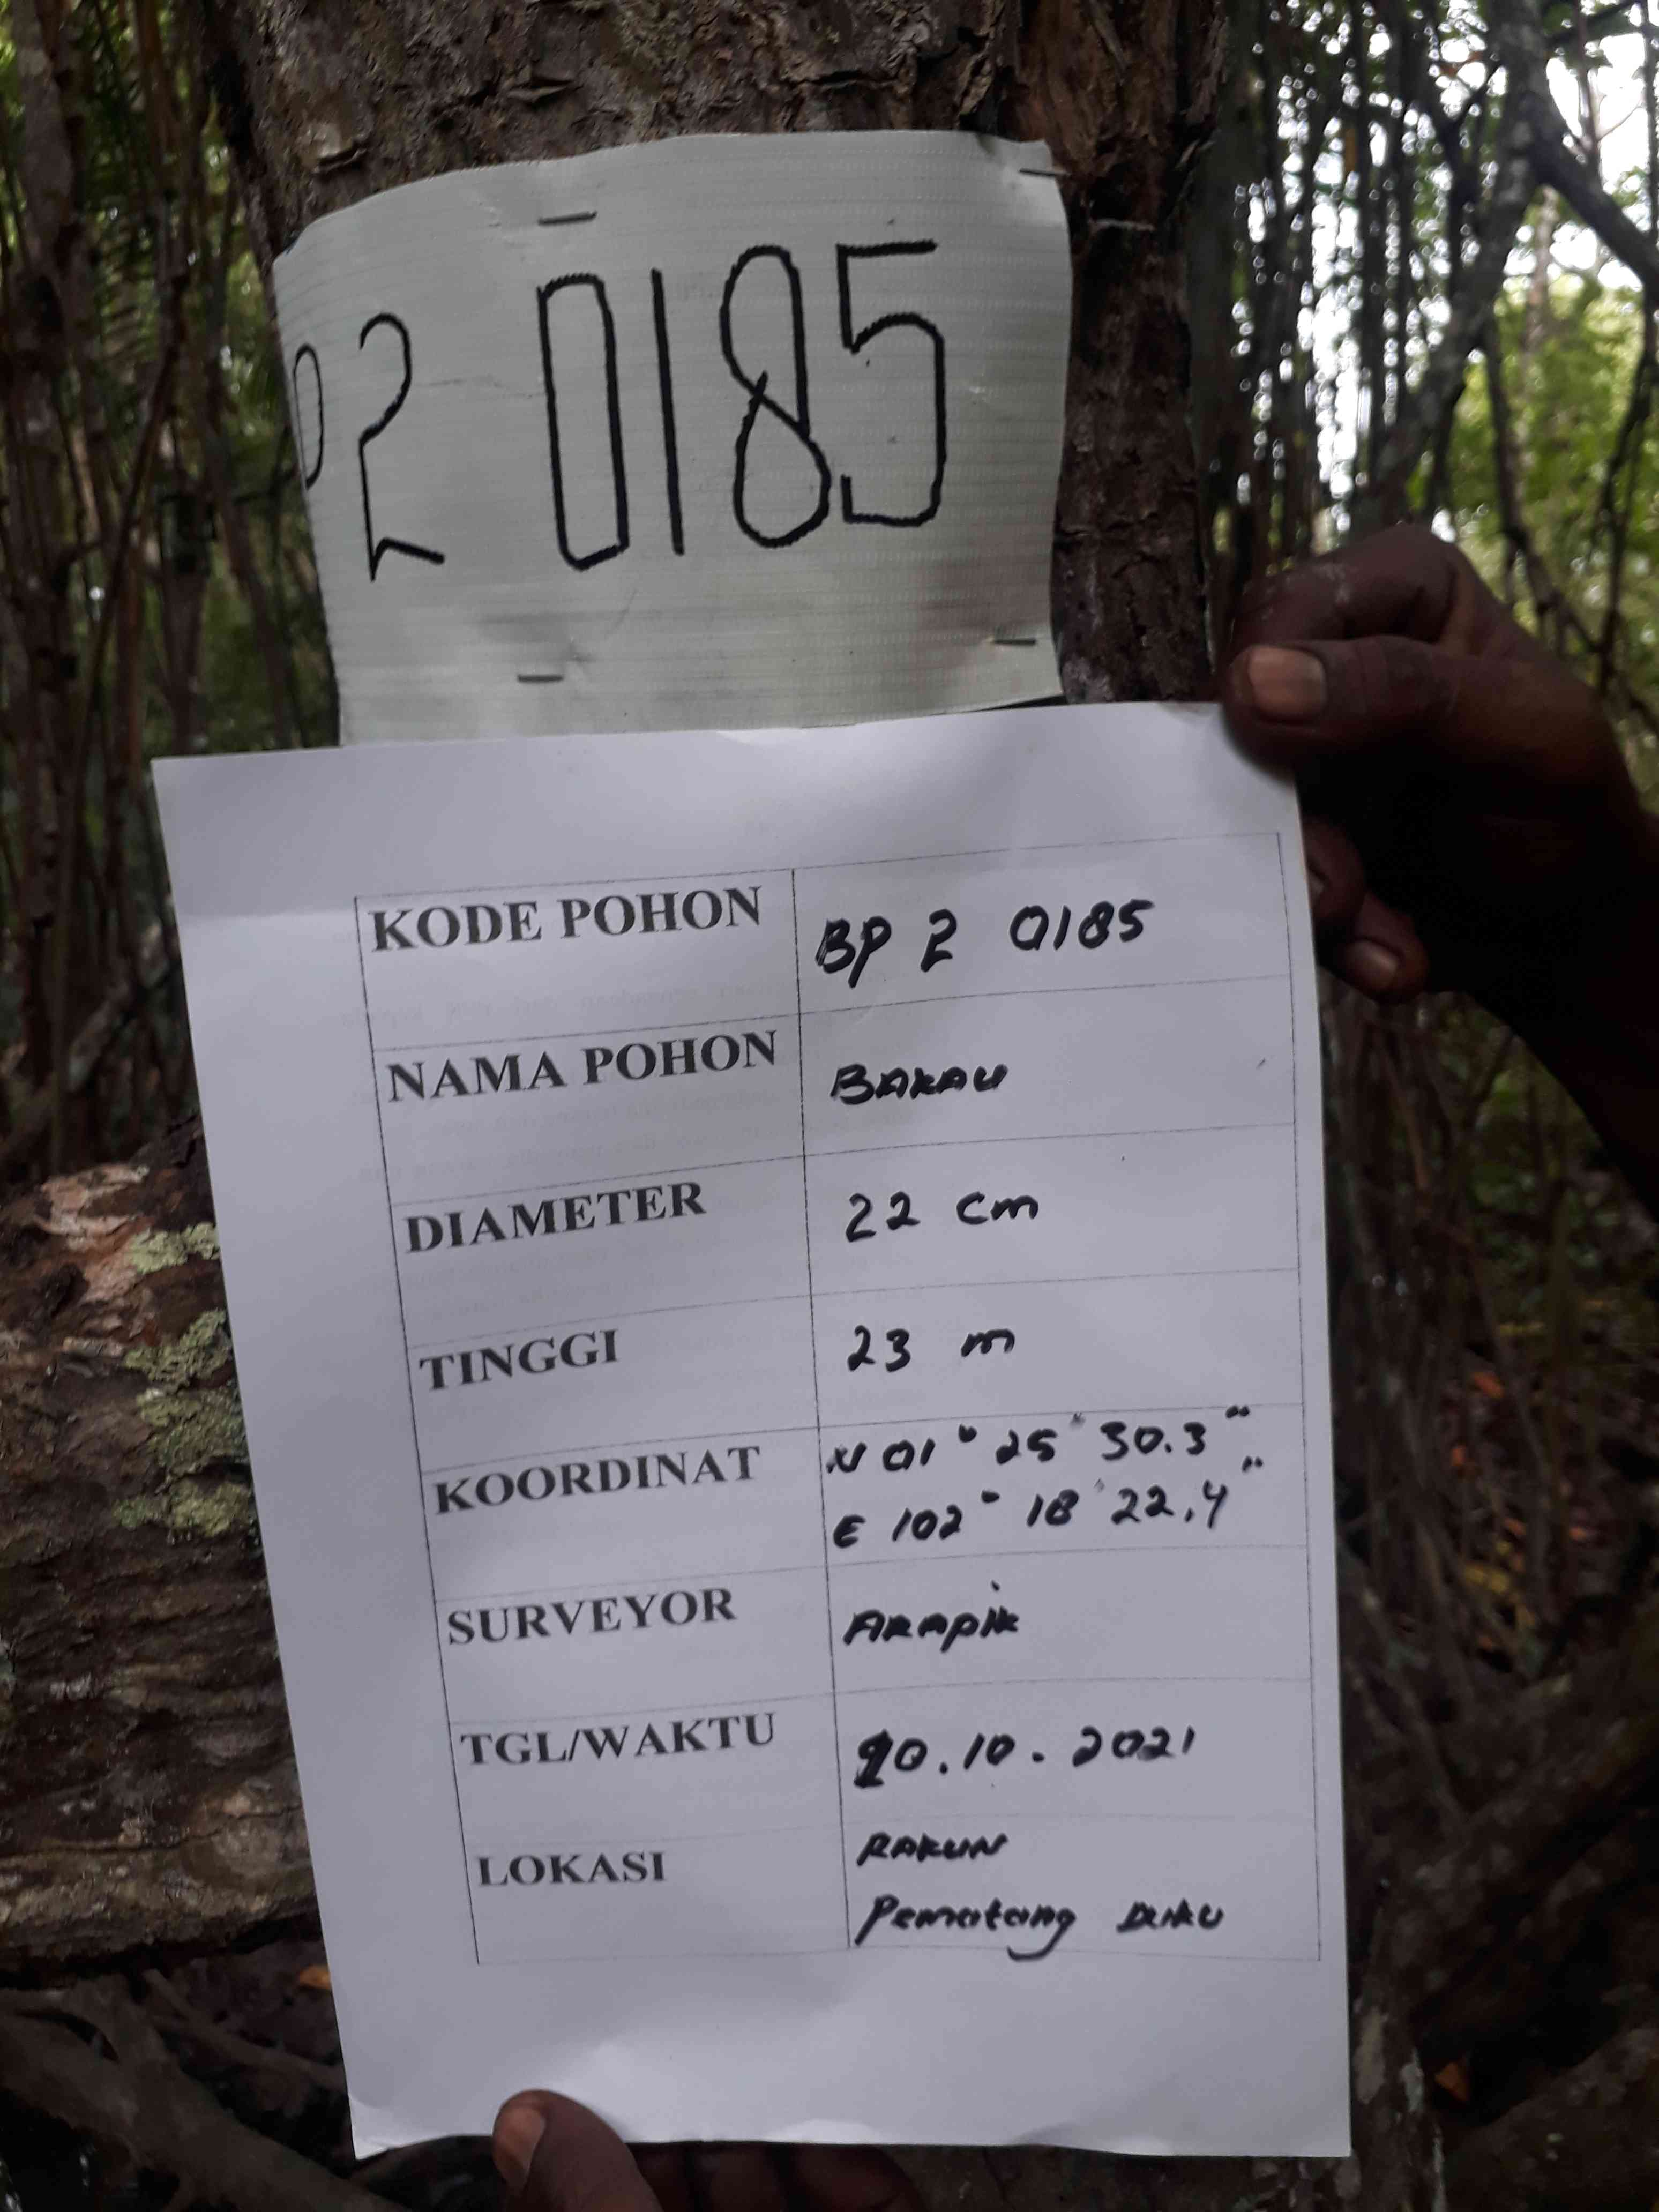 P2 0185
KODE POHON BP 2 0185
NAMA POHON BAKAU
DIAMETER 22 cm
TINGGI 23 m
KOORDINAT N 01° 25" 30.3"
E 102° 18' 22.4"
SURVEYOR ARAPIK
TGL/WAKTU 10.10.2021
LOKASI RAKUN
Pematang DUKU